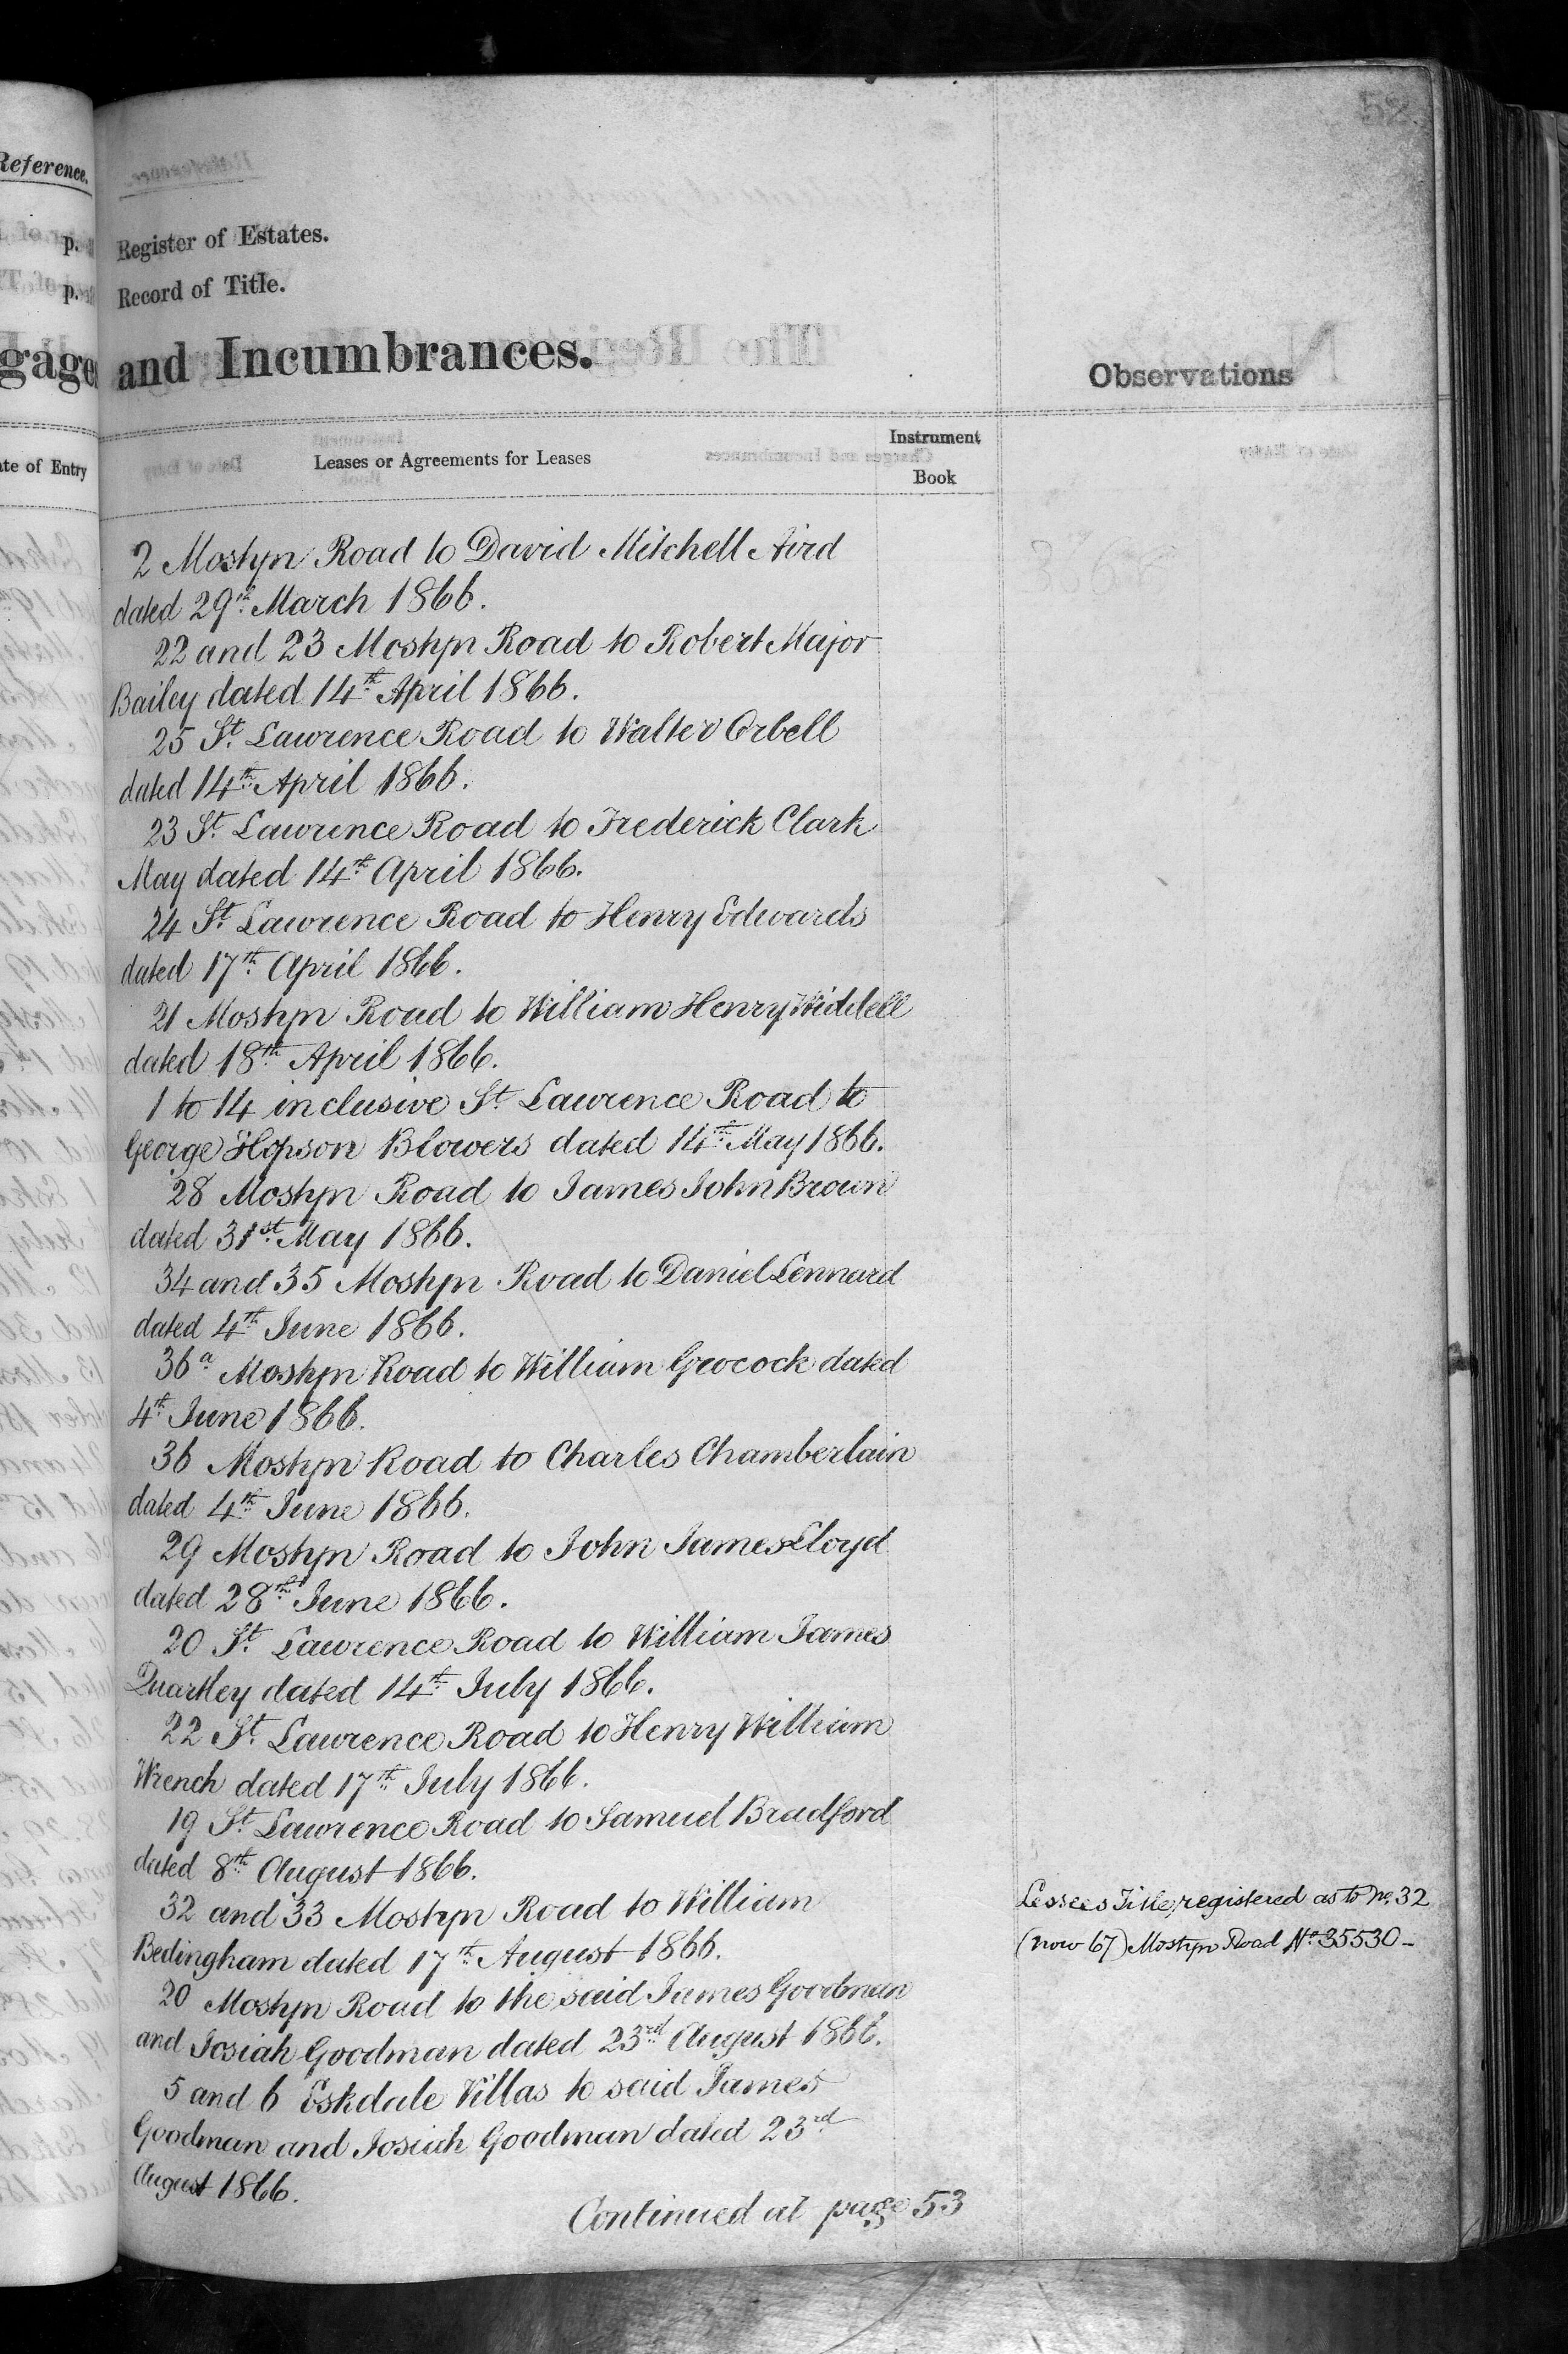 52
Reference.
p.
p.
gage
ate of Entry
Register of Estates.
Record of Title.
and Incumbrances.
Observations
Leases or Agreements for Leases
Instrument
Book
2 Mostyn Road to David Mitchell Aird
dated 29th March 1866.
22 and 23 Mostyn Road to Robert Major
Bailey dated 14th April 1866.
25 St. Lawrence Road to Walter Orbell
dated 14th April 1866.
23 St. Lawrence Road to Frederick Clark
May dated 14th April 1866.
24 St. Lawrence Road to Henry Edwards
dated 17th April 1866.
21 Mostyn Road to William Henry Widdell
dated 18th April 1866.
1 to 14 inclusive St. Lawrence Road to
George Hopson Blowers dated 14th May 1866.
28 Mostyn Road to James John Brown
dated 31st May 1866.
34 and 35 Mostyn Road to Daniel Lennard
dated 4th June 1866.
36a Mostyn Road to William Grocock dated
4th June 1866.
36 Mostyn Road to Charles Chamberlain
dated 4th June 1866.
29 Mostyn Road to John James Lloyd
dated 28th June 1866.
20 St. Lawrence Road to William James
Quartley dated 14th July 1866.
22 St. Lawrence Road to Henry William
Wrench dated 17th July 1866.
19 St. Lawrence Road to Samuel Bradford
dated 8th August 1866.
32 and 33 Mostyn Road to William
Bedingham dated 17th August 1866.
Lessees Title registered as to No. 32
(now 67) Mostyn Road No. 35530-
20 Mostyn Road to the said James Goodman
and Josiah Goodman dated 23rd August 1866.
5 and 6 Eskdale Villas to said James
Goodman and Josiah Goodman dated 23rd
August 1866.
Continued at page 53